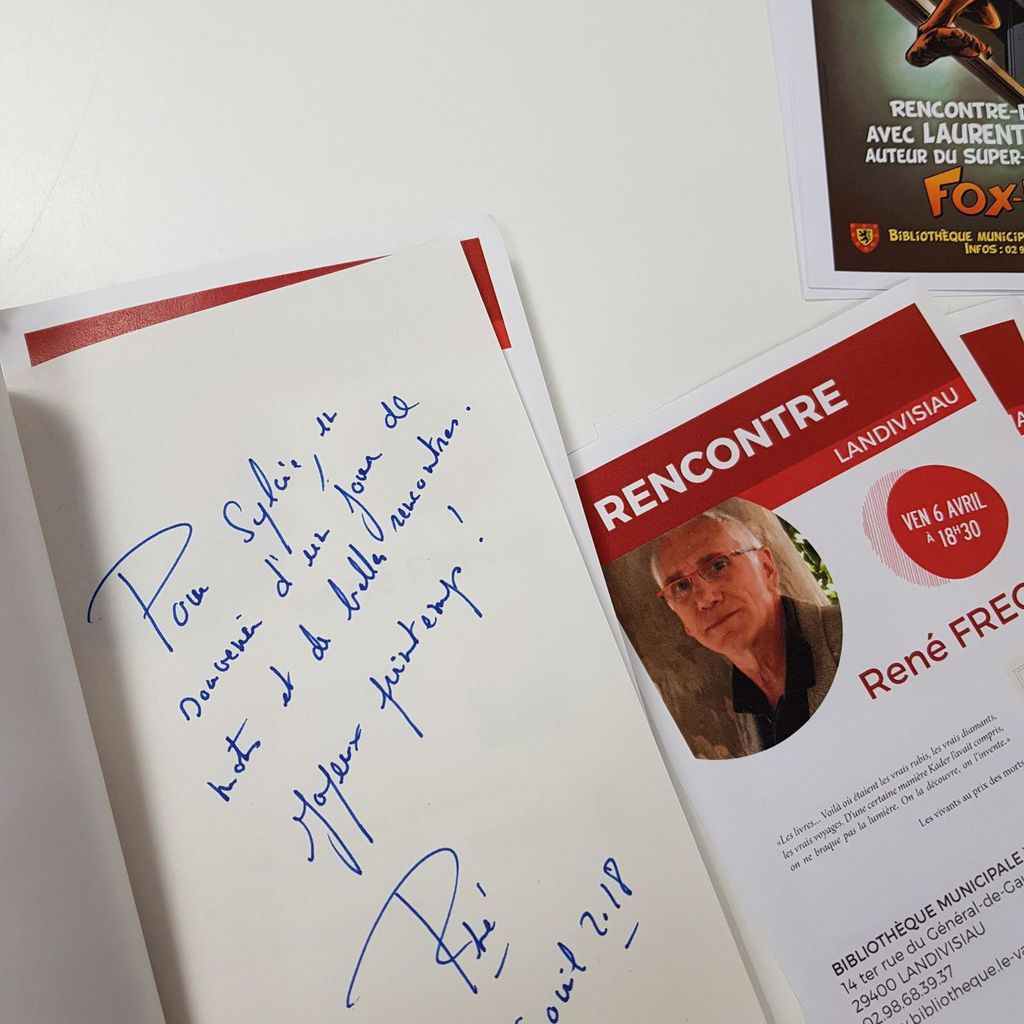 Pour Sylvie, un
souvenir d'un jour de
mots et de belles rencontres.
Joyeux printemps !
avril 2018
RENCONTRE-D
AVEC LAURENT
AUTEUR DU SUPER-
FOX-
BIBLIOTHÈQUE MUNICIP
INFOS : 02 9
RENCONTRE
LANDIVISIAU
VEN 6 AVRIL
À 18H30
René FREG
«Les livres... Voilà où étaient les vrais rubis, les vrais diamants,
les vrais voyages. D'une certaine manière Kader l'avait compris,
on ne braque pas la lumière. On la découvre, on l'invente.»
Les vivants au prix des morts
BIBLIOTHÈQUE MUNICIPALE
14 ter rue du Général-de-Gau
29400 LANDIVISIAU
02.98.68.39.37
.bibliotheque.le-va